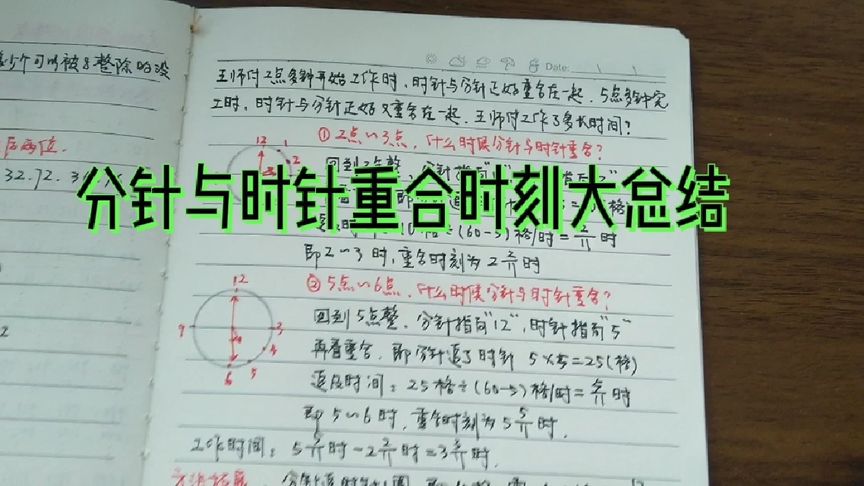 多少个可以被8整除的没
后两位.
32.72.3
2
Date:
王师付2点多钟开始工作时,时针与分针正好重合在一起.5点多钟完
工时,时针与分针正好又重合在一起.王师付工作了多长时间?
①2点~3点,什么时候分针与时针重合?
12 1 2 3
回到2点整,分针指向"12"
分针与时针重合时刻大总结
(60-5)格/时=2/11时
即2~3时,重合时刻为2 2/11时
②5点~6点,什么时候分针与时针重合?
12
9 3
4
6 5
回到5点整.分针指向"12",时针指向"5"
再看重合.即分针追了时针 5×5=25(格)
追及时间:25格÷(60-5)格/时=5/11时
即5~6时,重合时刻为5 5/11时.
工作时间:5 5/11时-2 2/11时=3 3/11时.